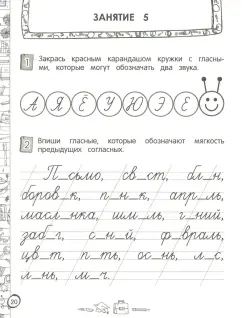 ЗАНЯТИЕ 5
1 Закрась красным карандашом кружки с гласны-
ми, которые могут обозначать два звука.
А Я Ё У Ю Э Е
2 Впиши гласные, которые обозначают мягкость
предыдущих согласных.
П_сьмо, св_ст, бл_н,
боров_к, п_н_к, апр_ль,
масл_нка, шм_ль, г_ний,
заб_г, с_н_й, ф_враль,
цв_т, п_ть, ос_нь, л_с,
л_нь, м_ч.
20